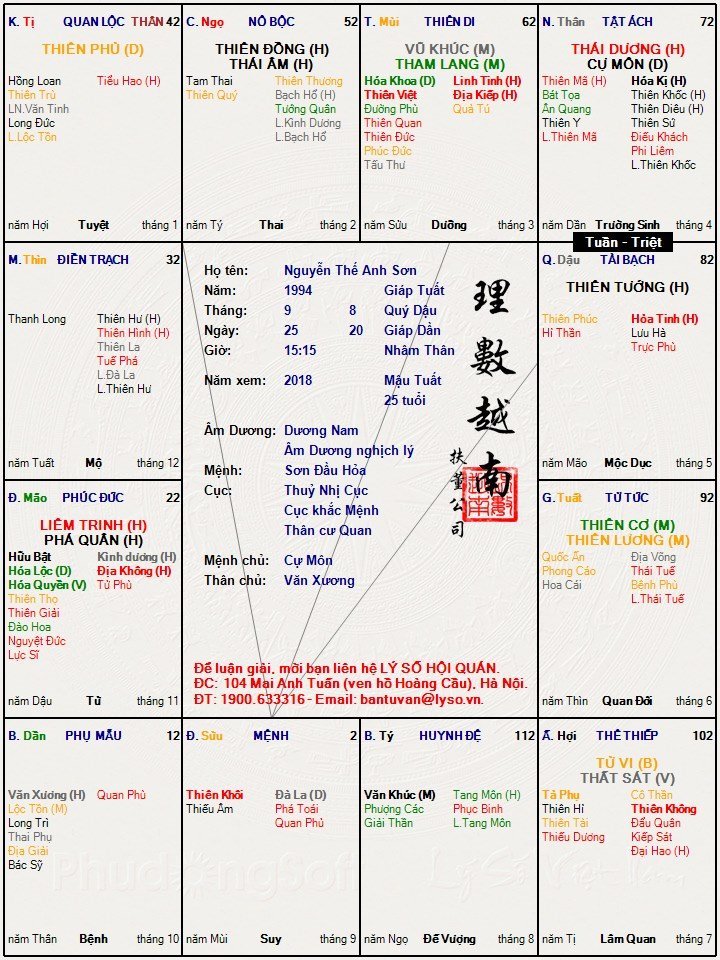 K. Tị QUAN LỘC THÂN 42
THIÊN PHỦ (D)
Hồng Loan Tiểu Hao (H)
Thiên Trù
LN.Văn Tinh
Long Đức
L.Lộc Tồn
năm Hợi Tuyệt tháng 1
C. Ngọ NÔ BỘC 52
THIÊN ĐỒNG (H)
THÁI ÂM (H)
Tam Thai Thiên Thương
Thiên Quý Bạch Hổ (H)
Tướng Quân
L.Kình Dương
L.Bạch Hổ
năm Tý Thai tháng 2
T. Mùi THIÊN DI 62
VŨ KHÚC (M)
THAM LANG (M)
Hóa Khoa (D) Linh Tinh (H)
Thiên Việt Địa Kiếp (H)
Đường Phù Quả Tú
Thiên Quan
Thiên Đức
Phúc Đức
Tấu Thư
năm Sửu Dưỡng tháng 3
N. Thân TẬT ÁCH 72
THÁI DƯƠNG (H)
CỰ MÔN (D)
Thiên Mã (H) Hóa Kị (H)
Bát Tọa Thiên Khốc (H)
Ân Quang Thiên Diêu (H)
Thiên Y Thiên Sứ
L.Thiên Mã Điếu Khách
Phi Liêm
L.Thiên Khốc
năm Dần Trường Sinh tháng 4
Tuần - Triệt
M. Thìn ĐIỀN TRẠCH 32
Thanh Long Thiên Hư (H)
Thiên Hình (H)
Thiên La
Tuế Phá
L.Đà La
L.Thiên Hư
năm Tuất Mộ tháng 12
Họ tên: Nguyễn Thế Anh Sơn
Năm: 1994 Giáp Tuất
Tháng: 9 8 Quý Dậu
Ngày: 25 20 Giáp Dần
Giờ: 15:15 Nhâm Thân
Năm xem: 2018 Mậu Tuất
25 tuổi
Âm Dương: Dương Nam
Âm Dương nghịch lý
Mệnh: Sơn Đầu Hỏa
Cục: Thuỷ Nhị Cục
Cục khắc Mệnh
Thân cư Quan
Mệnh chủ: Cự Môn
Thân chủ: Văn Xương
理數越南
扶董公司
Để luận giải, mời bạn liên hệ LÝ SỐ HỘI QUÁN.
ĐC: 104 Mai Anh Tuấn (ven hồ Hoàng Cầu), Hà Nội.
ĐT: 1900.633316 - Email: bantuvan@lyso.vn.
Q. Dậu TÀI BẠCH 82
THIÊN TƯỚNG (H)
Thiên Phúc Hỏa Tinh (H)
Hỉ Thần Lưu Hà
Trực Phù
năm Mão Mộc Dục tháng 5
Đ. Mão PHÚC ĐỨC 22
LIÊM TRINH (H)
PHÁ QUÂN (H)
Hữu Bật Kình dương (H)
Hóa Lộc (D) Địa Không (H)
Hóa Quyền (V) Tử Phù
Thiên Thọ
Thiên Giải
Đào Hoa
Nguyệt Đức
Lực Sĩ
năm Dậu Tử tháng 11
G. Tuất TỬ TỨC 92
THIÊN CƠ (M)
THIÊN LƯƠNG (M)
Quốc Ấn Địa Võng
Phong Cáo Thái Tuế
Hoa Cái Bệnh Phù
L.Thái Tuế
năm Thìn Quan Đới tháng 6
B. Dần PHỤ MẪU 12
Văn Xương (H) Quan Phù
Lộc Tồn (M)
Long Trì
Thai Phụ
Địa Giải
Bác Sỹ
năm Thân Bệnh tháng 10
Đ. Sửu MỆNH 2
Thiên Khôi Đà La (D)
Thiếu Âm Phá Toái
Quan Phủ
năm Mùi Suy tháng 9
B. Tý HUYNH ĐỆ 112
Văn Khúc (M) Tang Môn (H)
Phượng Các Phục Binh
Giải Thần L.Tang Môn
năm Ngọ Đế Vượng tháng 8
Ấ. Hợi THÊ THIẾP 102
TỬ VI (B)
THẤT SÁT (V)
Tả Phụ Cô Thần
Thiên Hỉ Thiên Không
Thiên Tài Đẩu Quân
Thiếu Dương Kiếp Sát
Đại Hao (H)
năm Tị Lâm Quan tháng 7
PhudongSoft
Lý Số Việt Nam